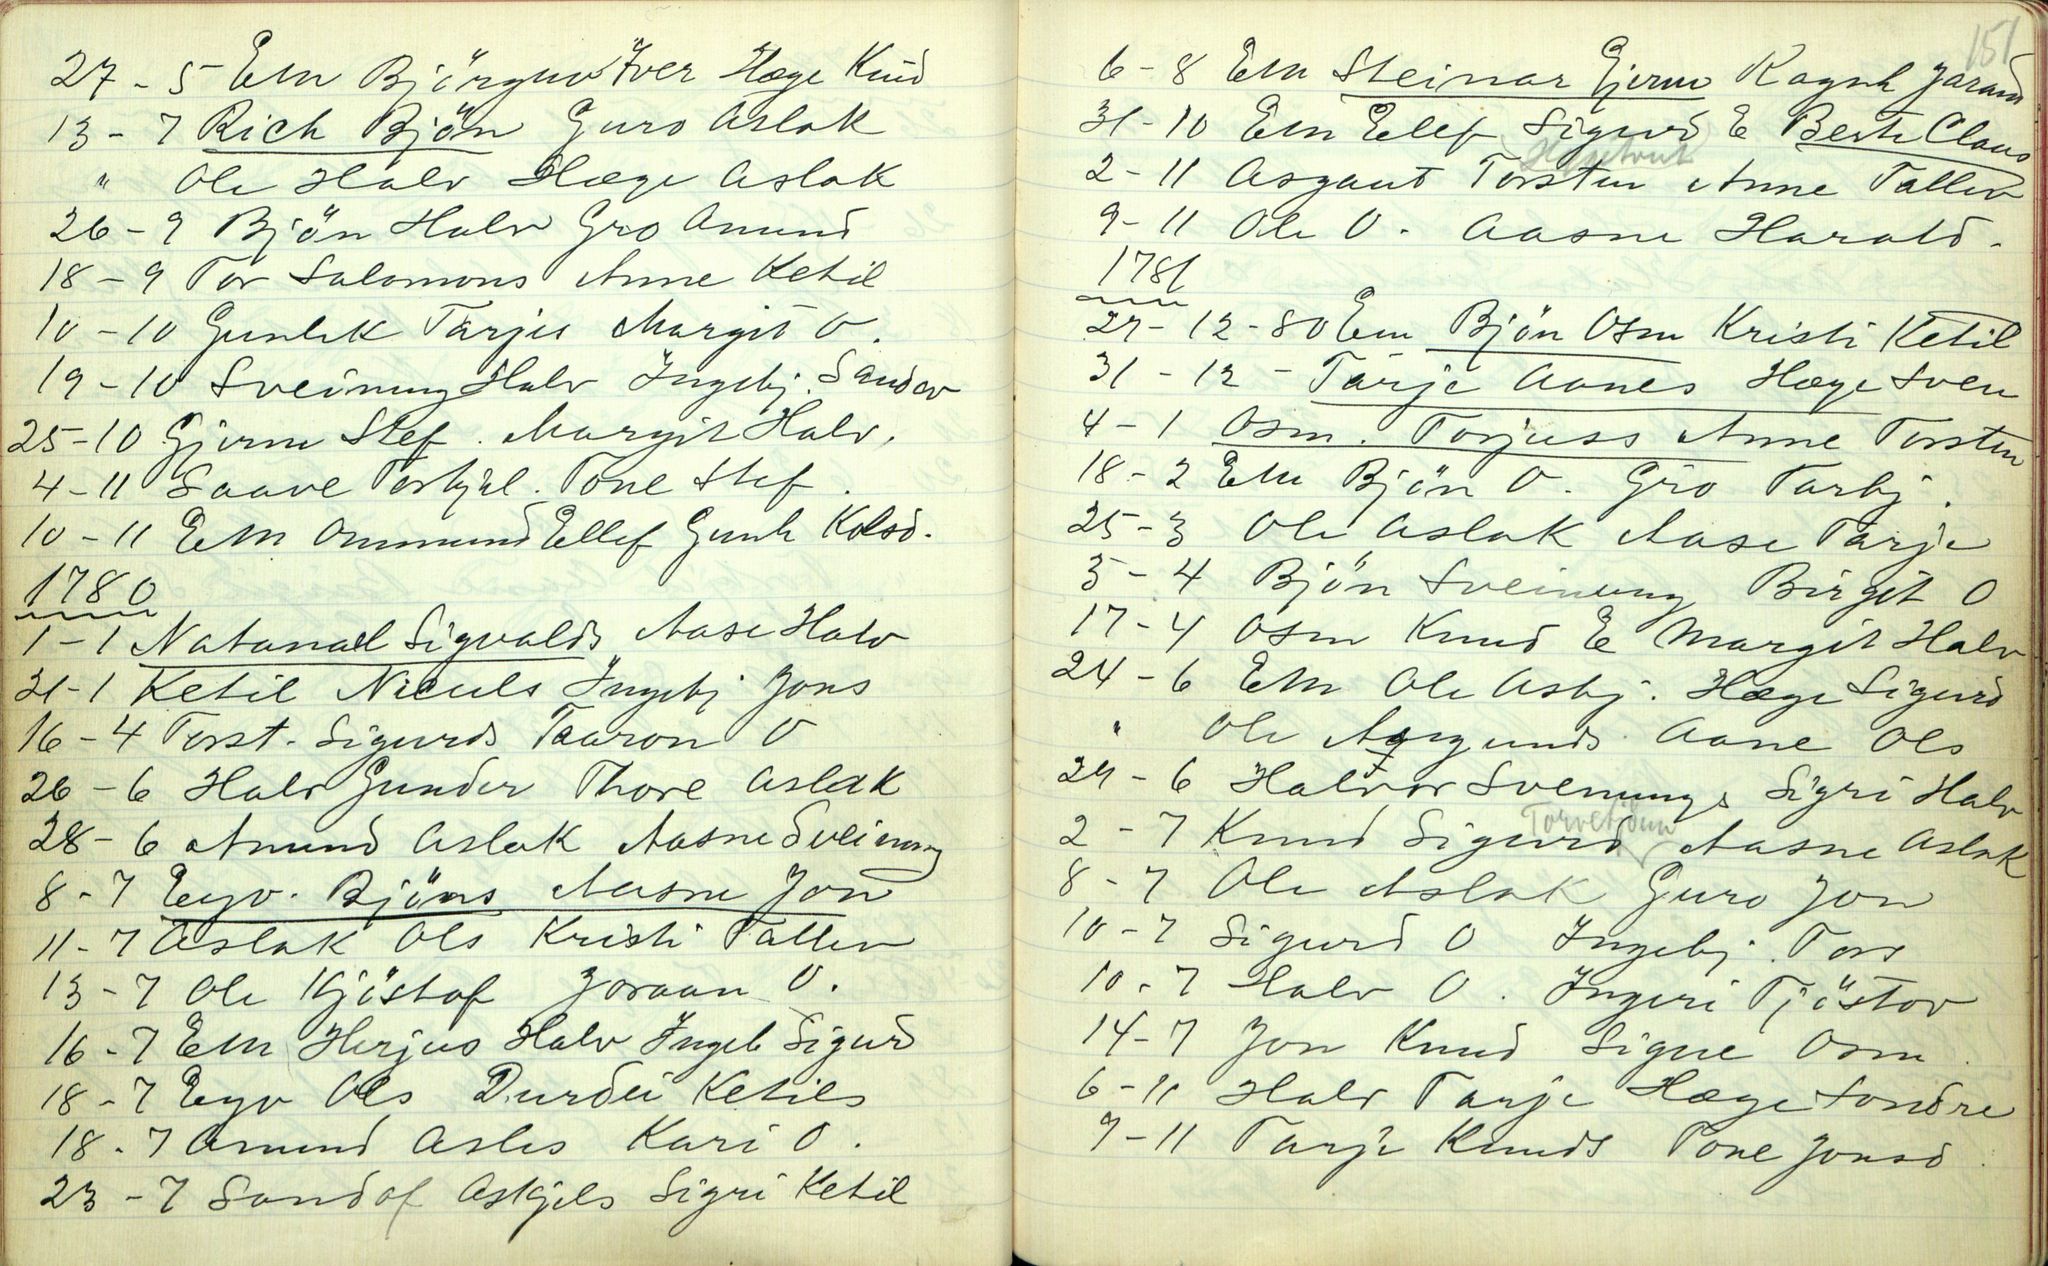 27 - 5 Em Björguv Iver Hæge Knud
13 - 7 Rich Bjön Guro Aslak
" Ole Halv Hæge Aslak
26 - 9 Bjön Halv Gro Amund
18 - 9 Tor Salomons Anne Ketil
10 - 10 Gunlek Tarjei Margit O.
19 - 10 Sveinung Halv Ingebj. Sandov
25 - 10 Gjerm Stef. Margit Halv.
4 - 11 Saave Torkjel. Tone Stef.
10 - 11 Em Ommund Ellef Gunh
1780
1 - 1 Natanael Sigvalds Aase Halv
31 - 1 Ketil Niculs Ingebj Jons
16 - 4 Torst. Sigurds Taaron O
26 - 6 Halv Gunder Thore Aslak
28 - 6 Amund Aslak Aasne Sveinung
8 - 7 Eyv. Bjöns Aasne Jon
11 - 7 Aslak Ols Kristi Tallev
13 - 7 Ole Kjöstof Joraan O.
16 - 7 Em Herjus Halv Ingeb Sigurd
18 - 7 Eyv Ols Durdei Ketils
18 - 7 Amund Asles Kari O.
23 - 7 Sondof Askjels Sigri Ketil
151
6 - 8 Em Steinar Gjerm Ragnh Jarand
31 - 10 Em Elef Sigurd E Berte Claus
2 - 11 Asgaut Torsten Anne Tallev
9 - 11 Ole O. Aasne Harald.
1781
27 - 12 - 80 Em Bjön Osm Kristi Ketil
31 - 12 - Tarje Aanes Hæge Sven
4 - 1 Osm. Torjuss Anne Torsten
18 - 2 Em Bjön O. Gro Tarbj.
25 - 3 Ole Aslak Aase Tarje
3 - 4 Bjön Sveinung Birgit O
17 - 4 Osm Knud E Margit Halv
24 - 6 Em Ole Asbj. Hæge Sigurd
" Ole Aasgunds Aane Ols
29 - 6 Halvor Svenungs Sigri Halv
Torvetjönn
2 - 7 Knud Sigurd Aasne Aslak
8 - 7 Ole Aslak Guro Jon
10 - 7 Sigurd O Ingebj. Tors
10 - 7 Halv O. Ingeri Tjöstov
14 - 7 Jon Knud Signe Osm.
6 - 11 Halv Tarje Hæge Sondre
9 - 11 Tarje Knuds Tone Jonsd.